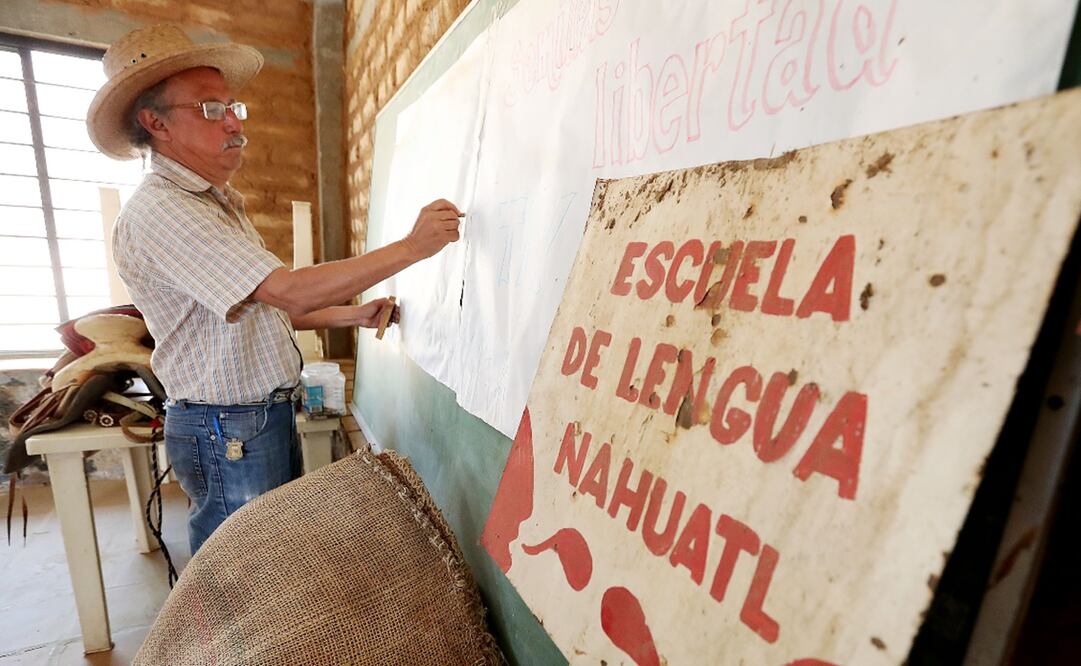 semillas
libertad
ESCUELA
DE LENGUA
NAHUATL